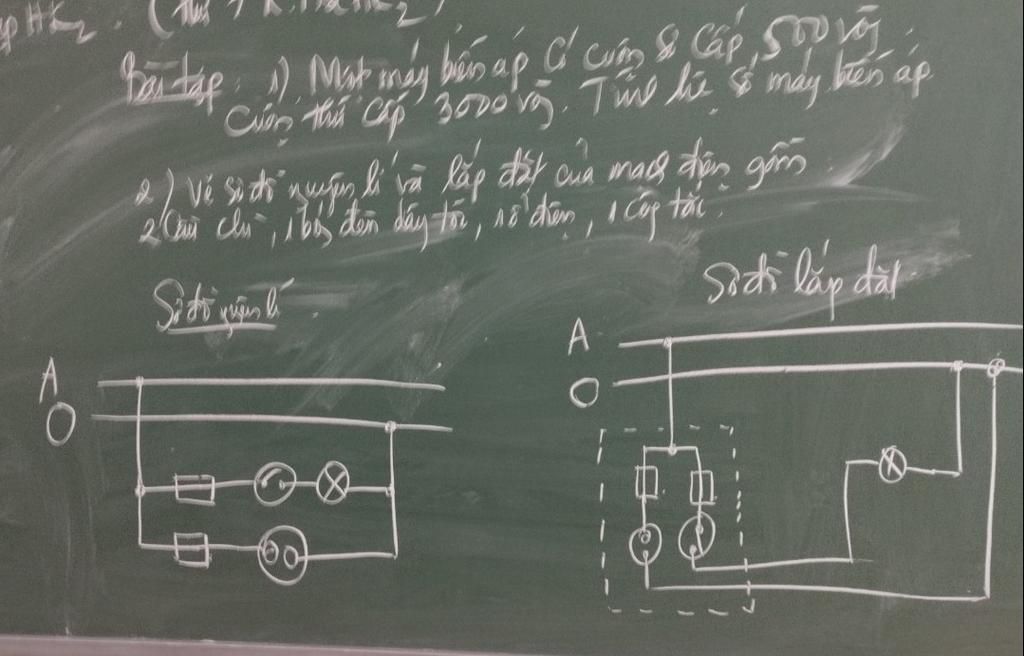 (thứ 7
Bài tập. 1) Một máy biến áp có cuộn sơ cấp 500 vg
cuộn thứ cấp 3000 vg. Tính hệ số máy biến áp
2) Vẽ sơ đồ nguyên lí và lắp đặt của mạch điện gồm
2 cầu chì, 1 bóng đèn dây tóc, 1 ổ điện, 1 công tắc.
Sơ đồ nguyên lí
Sơ đồ lắp đặt
A
O
A
O